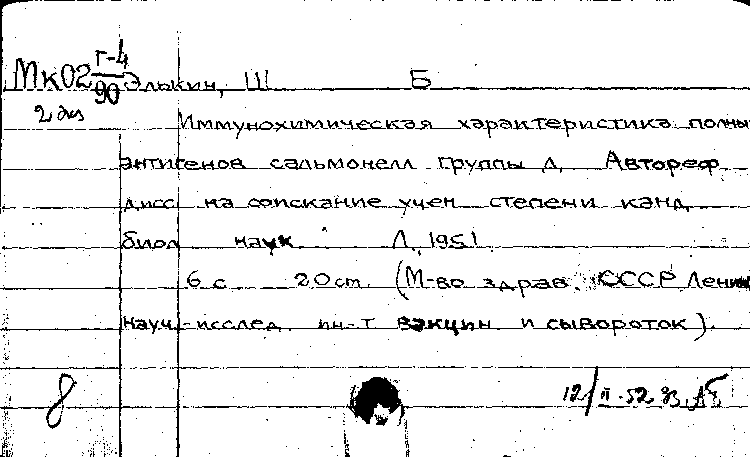 Мк02 Г-4/90 Элькин, Ш Б
2 экз
Иммунохимическая характеристика полны
антигенов сальмонелл группы Д. Автореф
дисс на соискание учен степени канд
биол наук. Л., 1951.
6 с 20 см. (М-во здрав. СССР Ленин
науч.-исслед. ин-т вакцин и сывороток).
8 12/II.52